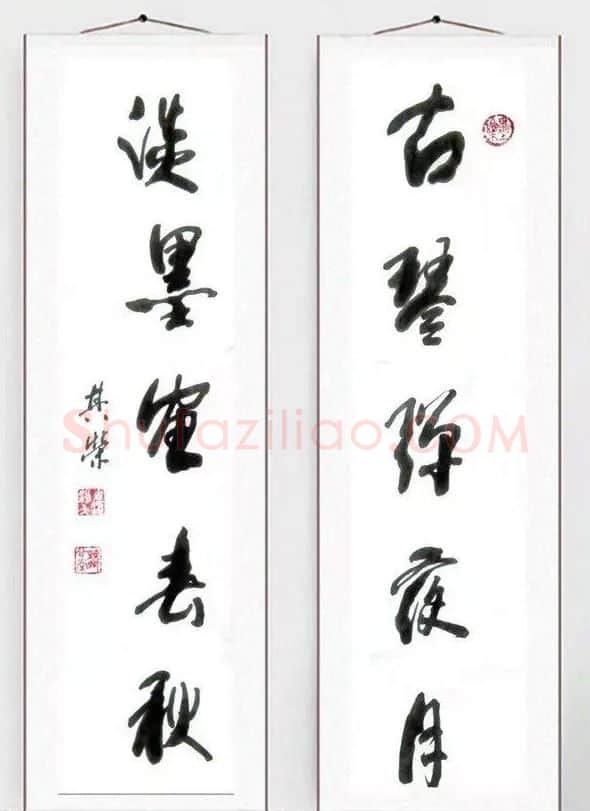 古琴弹夜月
淡墨宣春秋
榮
Shufaziliao.COM